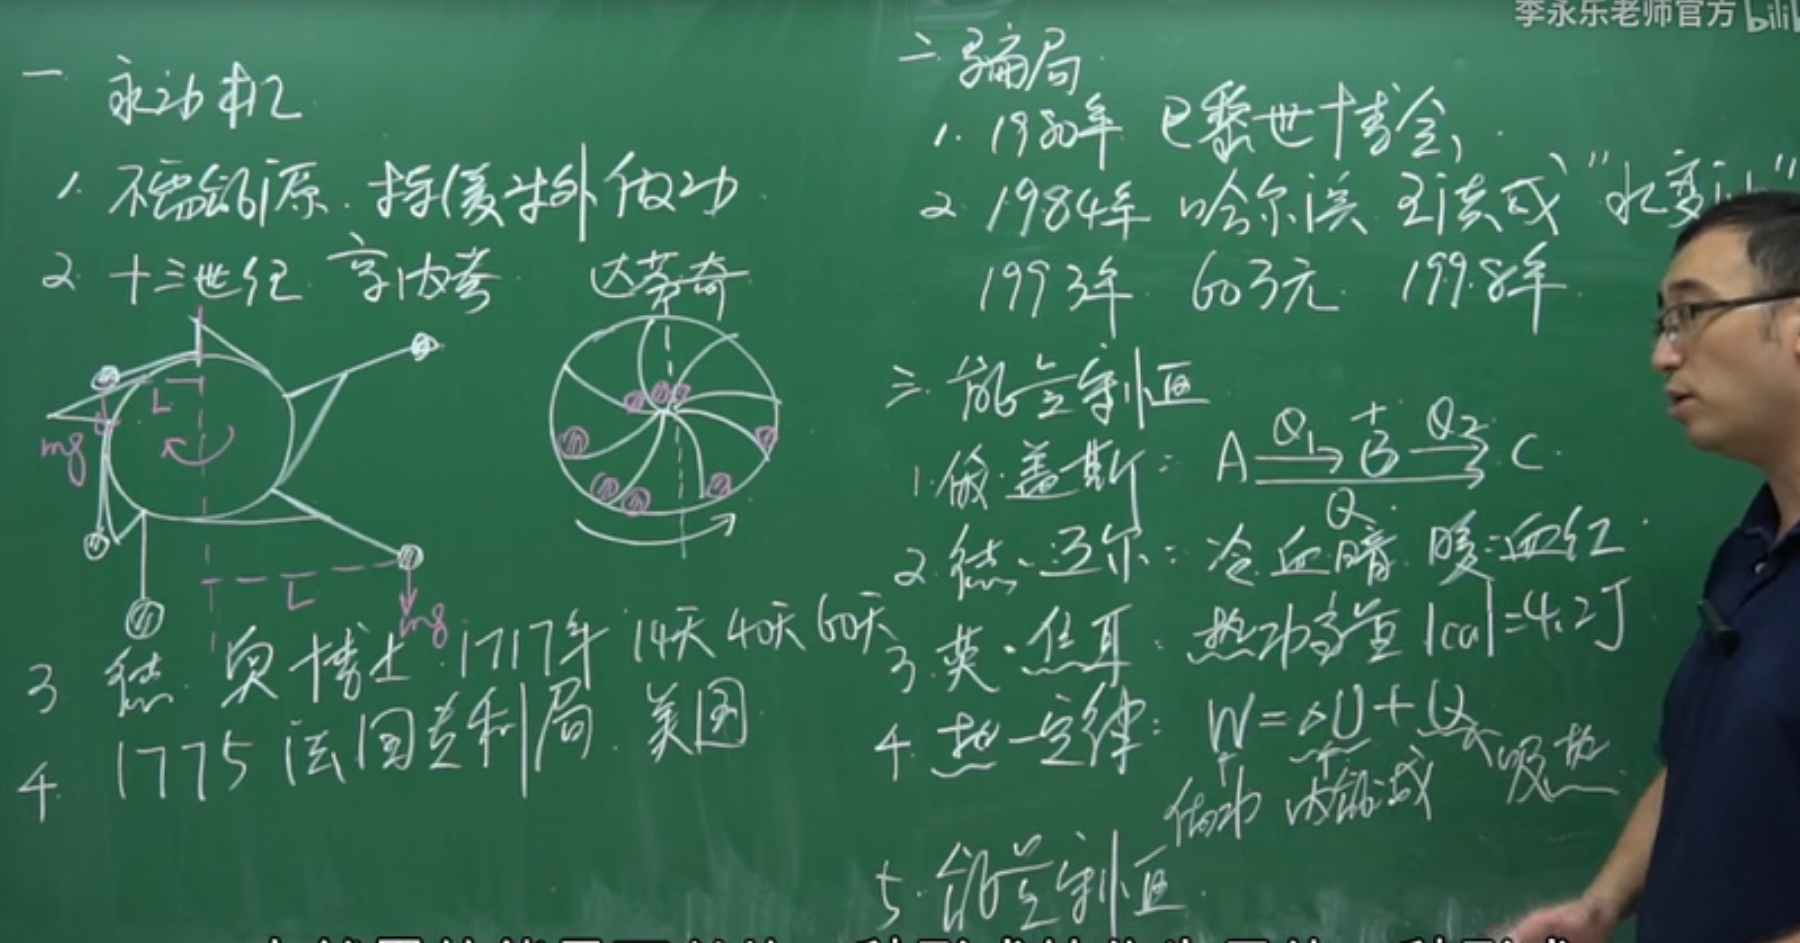 李永乐老师官方 bili
一 永动机
1. 不需能源. 持续对外做功
2 十三世纪 亨内考 达芬奇
L
mg
L
mg
3 德. 奥博士. 1717年 14天 40天 60天
4. 1775 法国专利局. 美国
二. 骗局
1. 1980年 巴黎世博会,
2. 1984年 哈尔滨 王洪成 "水变油"
1993年 60万元. 1998年.
三. 能量守恒
1. 俄·盖斯: A Q₁ B Q₂ C.
Q
2. 德·迈尔: 冷:血暗. 暖:血红.
3. 英·焦耳: 热功当量 1cal=4.2J
4. 热一定律: W=△U+Q
做功 内能减 吸热
5. 能量守恒.